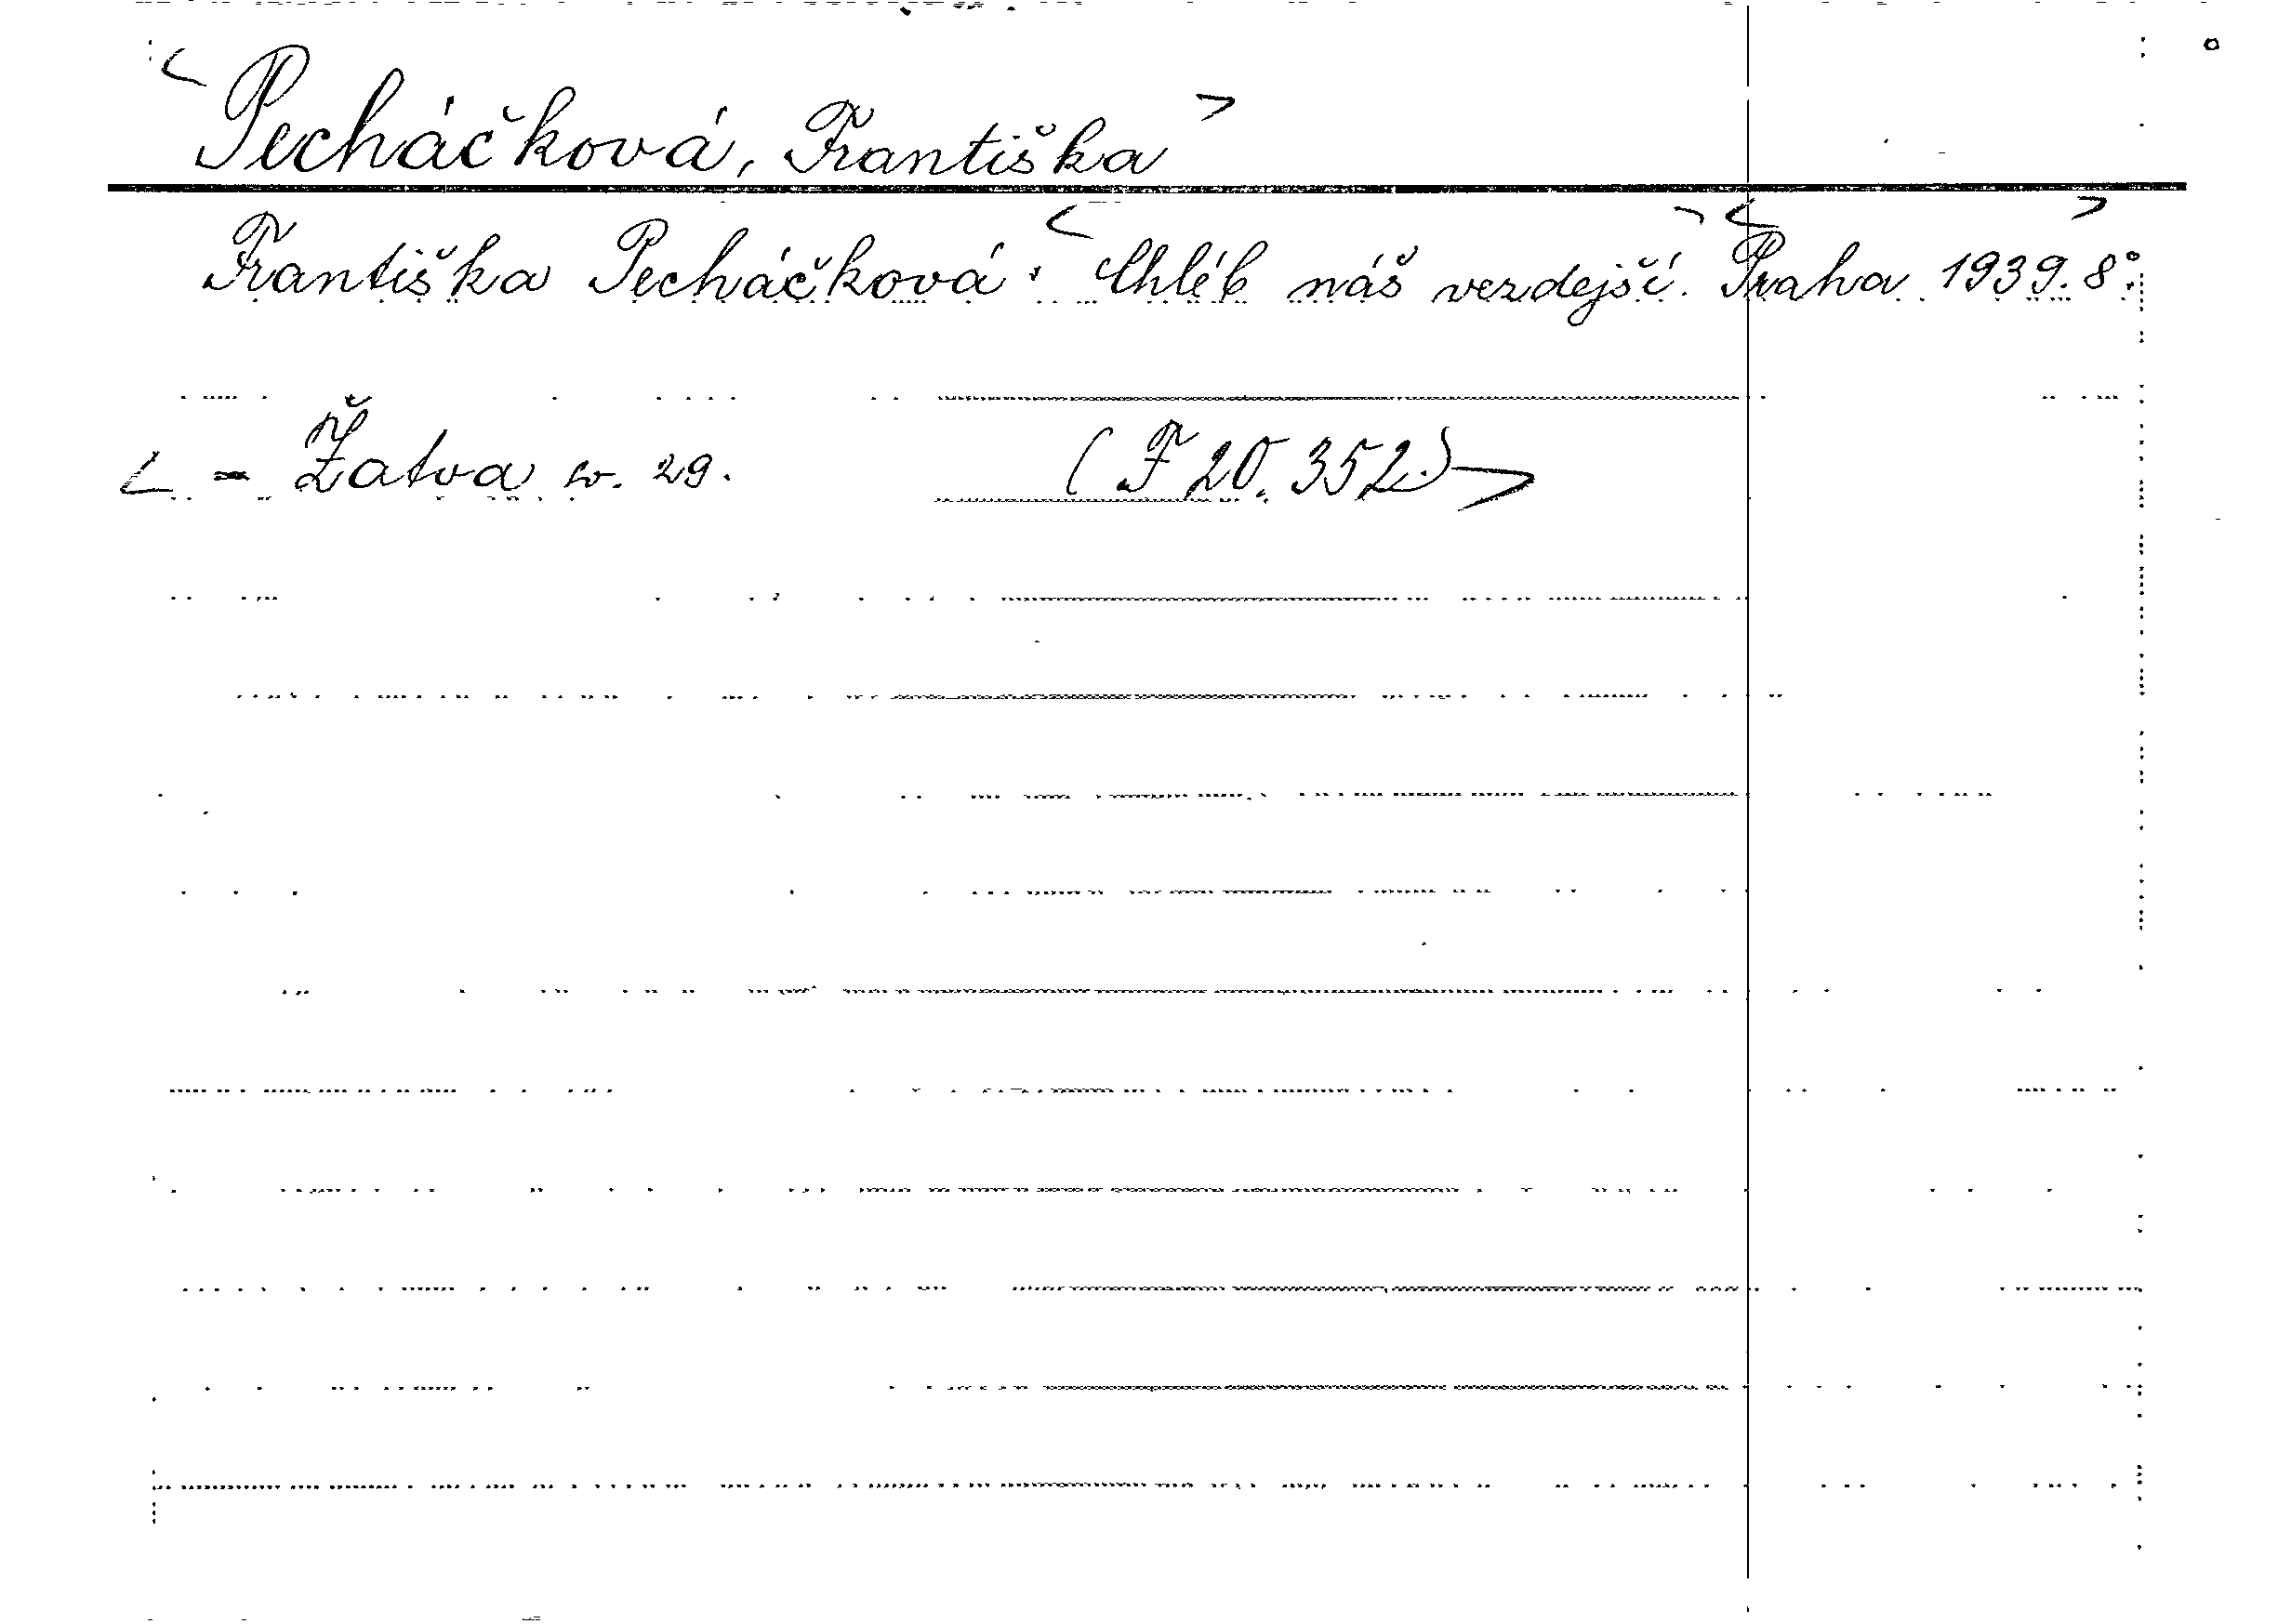 <Pecháčková, Františka>
Františka Pecháčková: <Chléb náš vezdejší.> <Praha 1939.> 8°.
<- Žatva sv. 29. (F 20.352)>